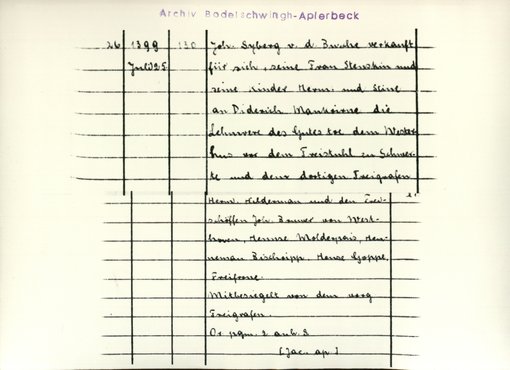 Archiv Bodelschwingh-Aplerbeck
26 1399 130 Joh. Syberg v. d. Busche verkauft
Juli 25 für sich, seine Frau Stenskin und
seine Kinder Herm. und Seine
an Diderich Mankoirne die
Lehnwere des Gutes toe dem Wester
hus vor dem Freistuhl zu Schwer-
te und dem dortigen Freigrafen
Herm. Hilderman und den Frei-
schöffen Joh. Bruwer von West-
hoven, Henne Molders, Hen-
neman Bischoipp, Hanse Goppe,
Freifrone.
Mitbesiegelt von dem vorg
Freigrafen.
Or. pgm. 2 anh. S
[Jac. ap.]